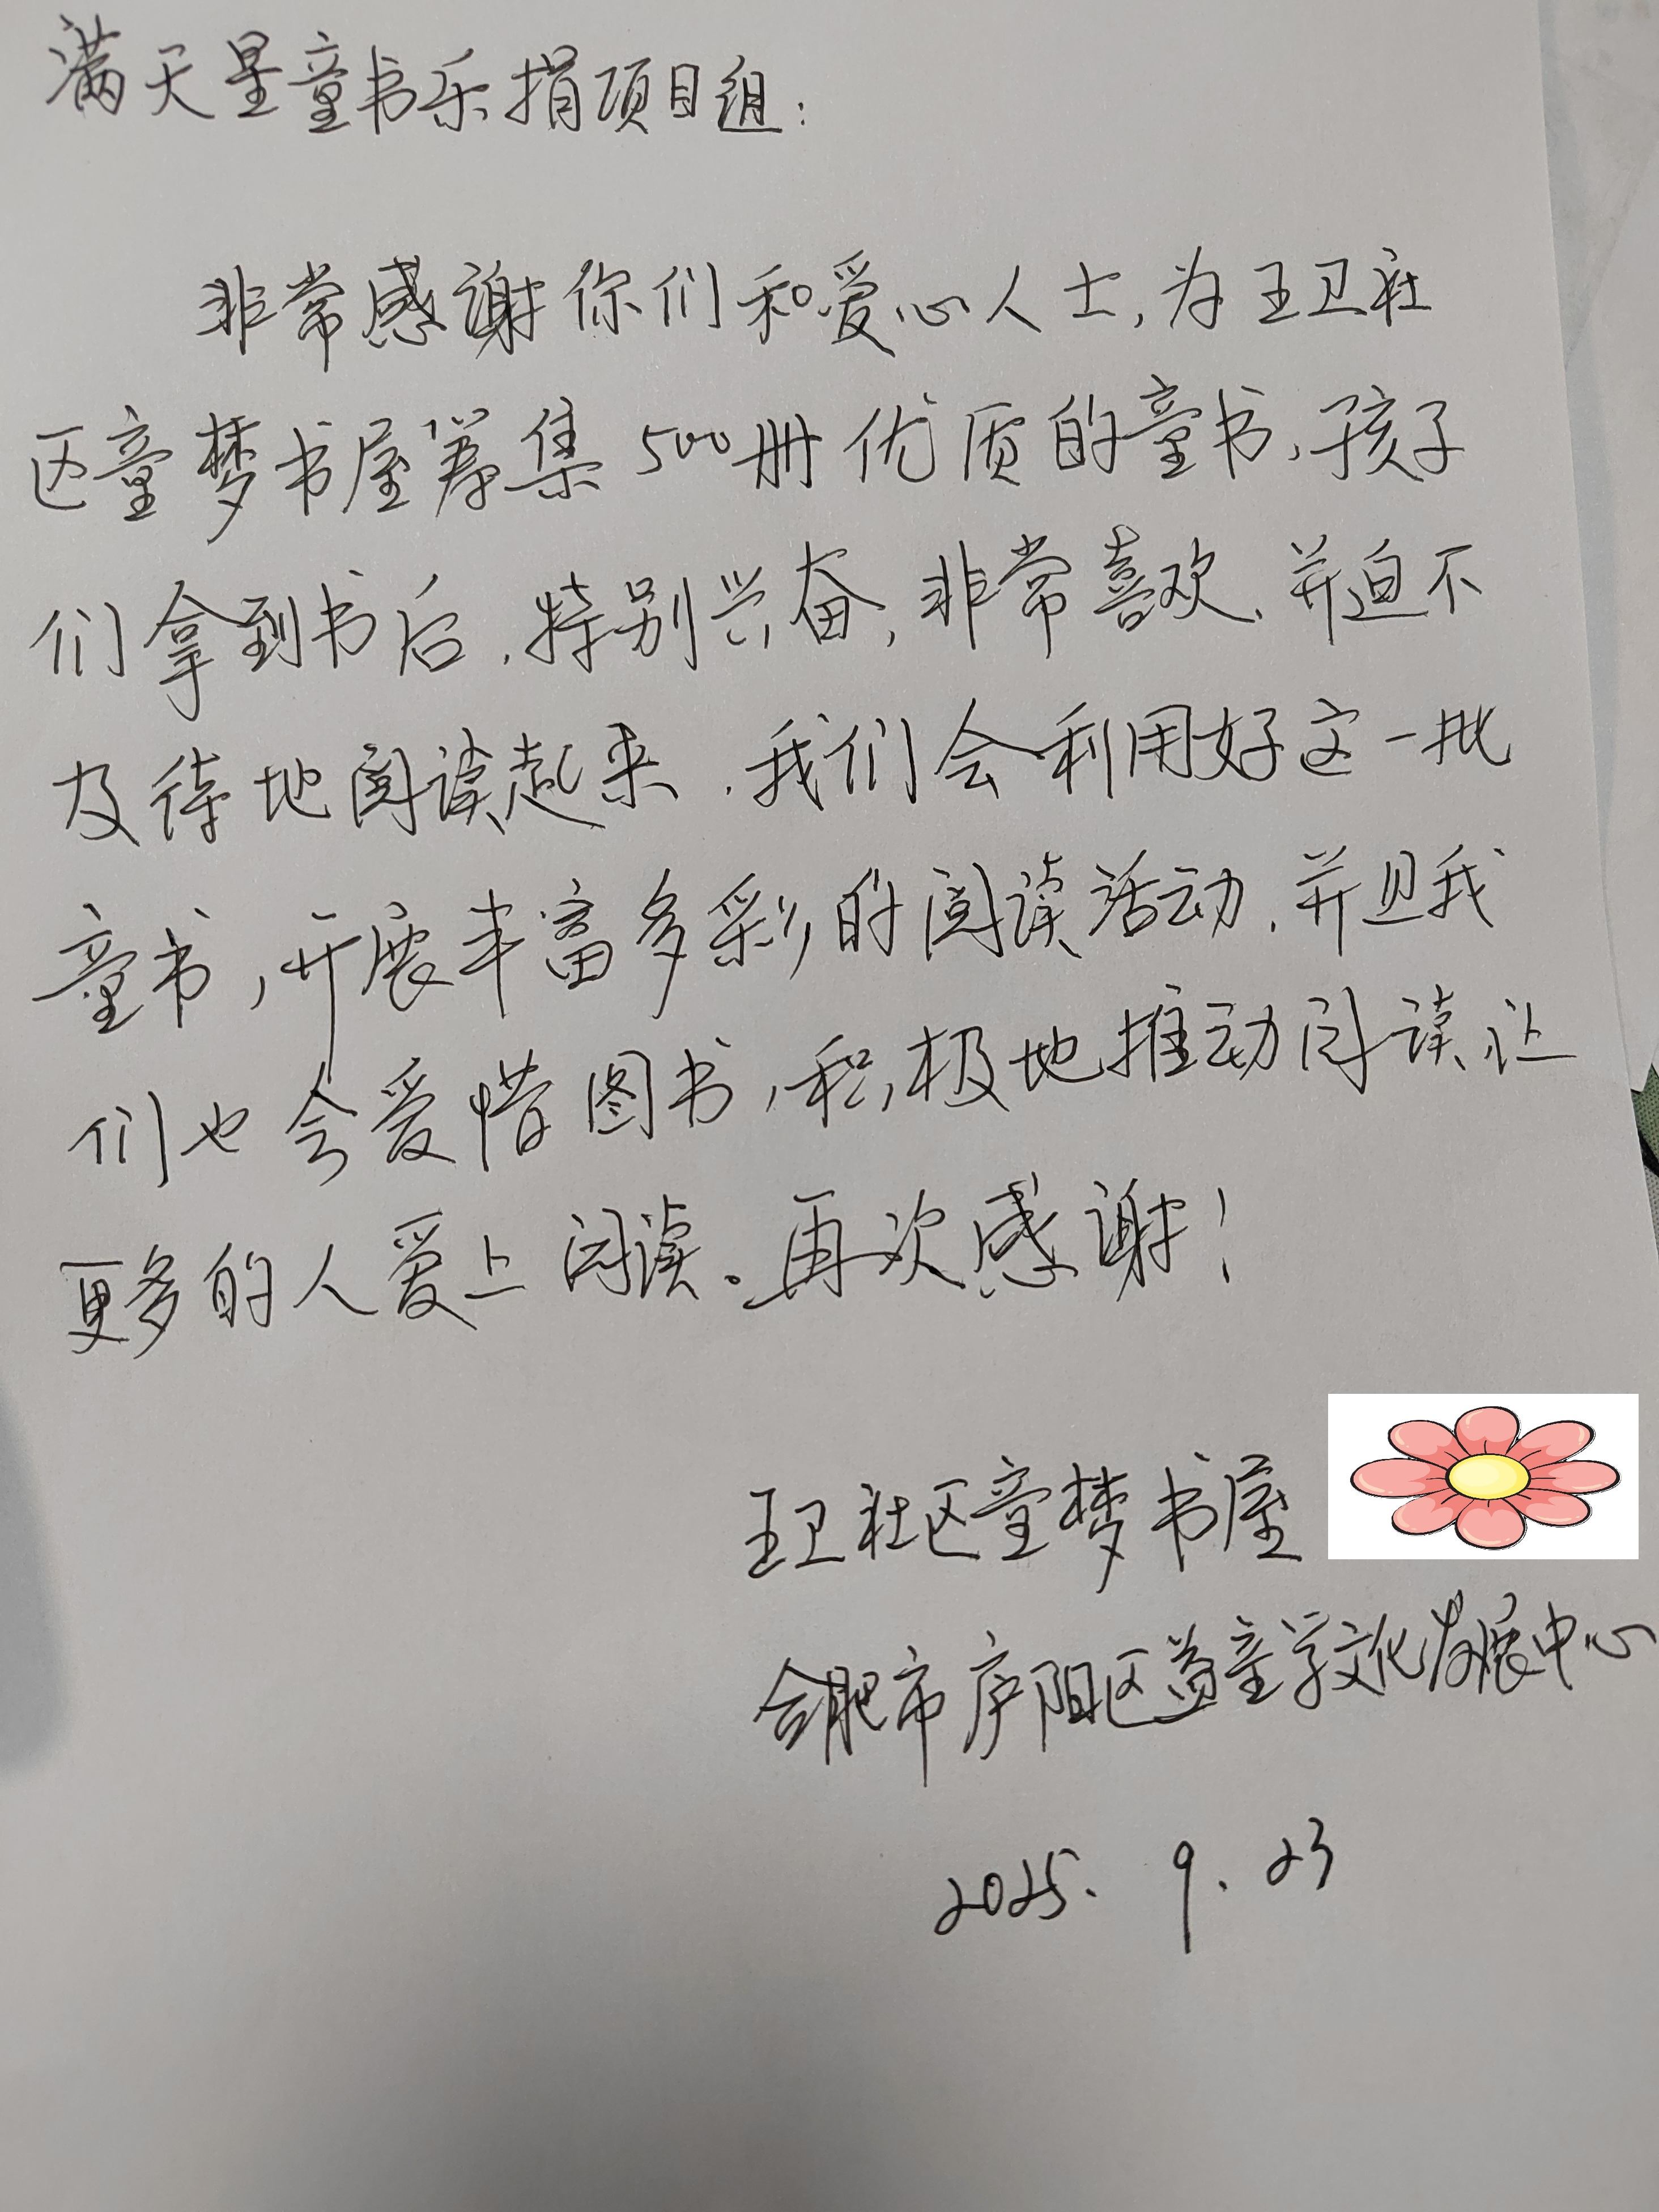 满天星童书乐捐项目组:
非常感谢你们和爱心人士,为王卫社
区童梦书屋筹集500册优质的童书,孩子
们拿到书后,特别兴奋,非常喜欢,并迫不
及待地阅读起来,我们会利用好这一批
童书,开展丰富多彩的阅读活动,并且我
们也会爱惜图书,积极地推动阅读,让
更多的人爱上阅读。再次感谢!
王卫社区童梦书屋
合肥市庐阳区益童学文化发展中心
2025. 9. 23